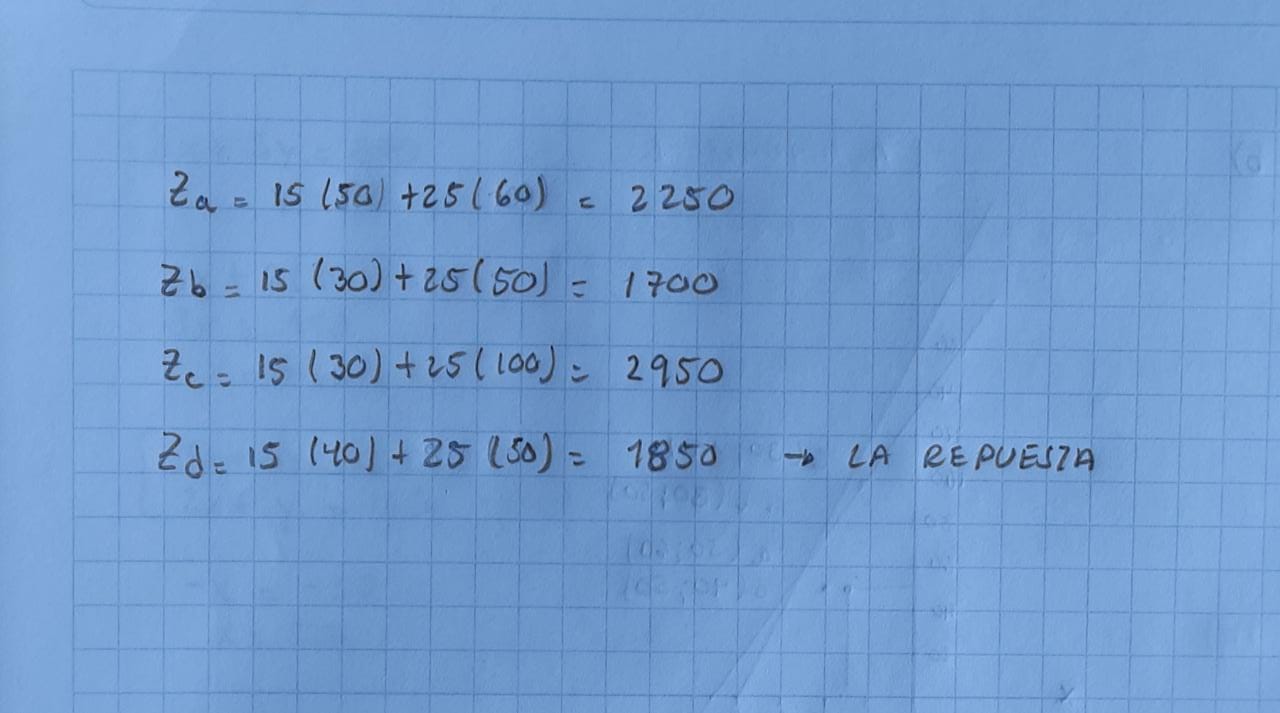 Za = 15 (50) + 25 (60) = 2250
Zb = 15 (30) + 25 (50) = 1700
Zc = 15 (30) + 25 (100) = 2950
Zd = 15 (40) + 25 (50) = 1850 → LA REPUESTA